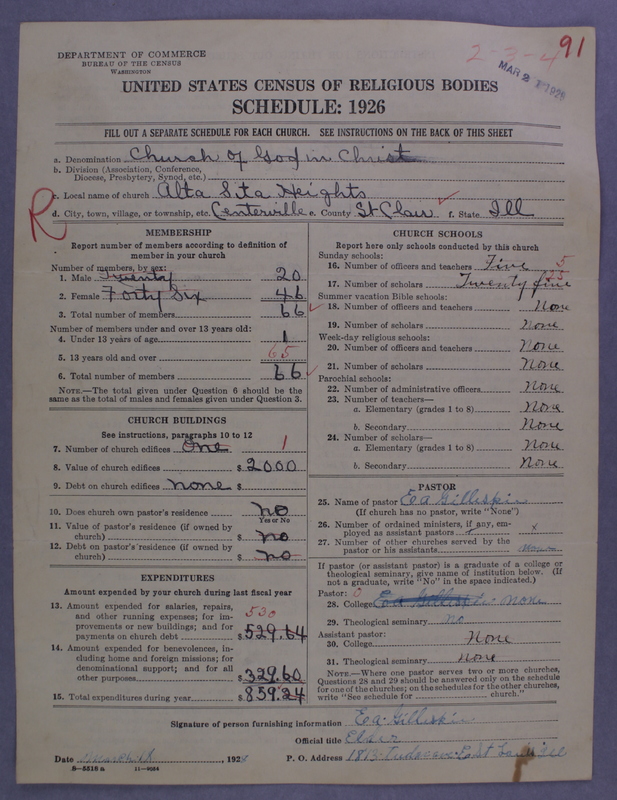 DEPARTMENT OF COMMERCE
BUREAU OF THE CENSUS
WASHINGTON
2-3-4 91
MAR 2 1928
UNITED STATES CENSUS OF RELIGIOUS BODIES
SCHEDULE: 1926
FILL OUT A SEPARATE SCHEDULE FOR EACH CHURCH. SEE INSTRUCTIONS ON THE BACK OF THIS SHEET
a. Denomination Church of God in Christ
b. Division (Association, Conference,
Diocese, Presbytery, Synod, etc.)
c. Local name of church Alta Sita Heights
R d. City, town, village, or township, etc. Centerville e. County St Clair f. State Ill
MEMBERSHIP
Report number of members according to definition of
member in your church
Number of members, by sex:
1. Male Twenty 20
2. Female Forty Six 46
3. Total number of members 66
Number of members under and over 13 years old:
4. Under 13 years of age 1
5. 13 years old and over 65
6. Total number of members 66
NOTE.—The total given under Question 6 should be
same as the total of males and females given under Question 3.
CHURCH BUILDINGS
See instructions, paragraphs 10 to 12
7. Number of church edifices One 1
8. Value of church edifices $ 2000
9. Debt on church edifices none $
10. Does church own pastor's residence no
Yes or No
11. Value of pastor's residence (if owned by
church) $ no
12. Debt on pastor's residence (if owned by
church) $ no
EXPENDITURES
Amount expended by your church during last fiscal year
13. Amount expended for salaries, repairs, 530
and other running expenses; for im-
provements or new buildings; and for
payments on church debt $ 529.64
14. Amount expended for benevolences, in-
cluding home and foreign missions; for
denominational support; and for all
other purposes $ 329.60
15. Total expenditures during year $ 859.24
CHURCH SCHOOLS
Report here only schools conducted by this church
Sunday schools:
16. Number of officers and teachers Five 5
17. Number of scholars Twenty five 25
Summer vacation Bible schools:
18. Number of officers and teachers None
19. Number of scholars None
Week-day religious schools:
20. Number of officers and teachers None
21. Number of scholars None
Parochial schools:
22. Number of administrative officers None
23. Number of teachers—
a. Elementary (grades 1 to 8) None
b. Secondary None
24. Number of scholars—
a. Elementary (grades 1 to 8) None
b. Secondary None
PASTOR
25. Name of pastor E a Gillispie
(If church has no pastor, write "None")
26. Number of ordained ministers, if any, em-
ployed as assistant pastors x
27. Number of other churches served by the
pastor or his assistants
If pastor (or assistant pastor) is a graduate of a college or
theological seminary, give name of institution below. (If
not a graduate, write "No" in the space indicated.)
Pastor: 0
28. College E a Gillispie none
29. Theological seminary no
Assistant pastor:
30. College None
31. Theological seminary none
NOTE.—Where one pastor serves two or more churches,
Questions 28 and 29 should be answered only on the schedule
for one of the churches; on the schedules for the other churches,
write "See schedule for church."
Signature of person furnishing information E a Gillispie
Official title Elder
Date March , 1928 P. O. Address 1813 East Louis Ill
8—5518 a 11—9064